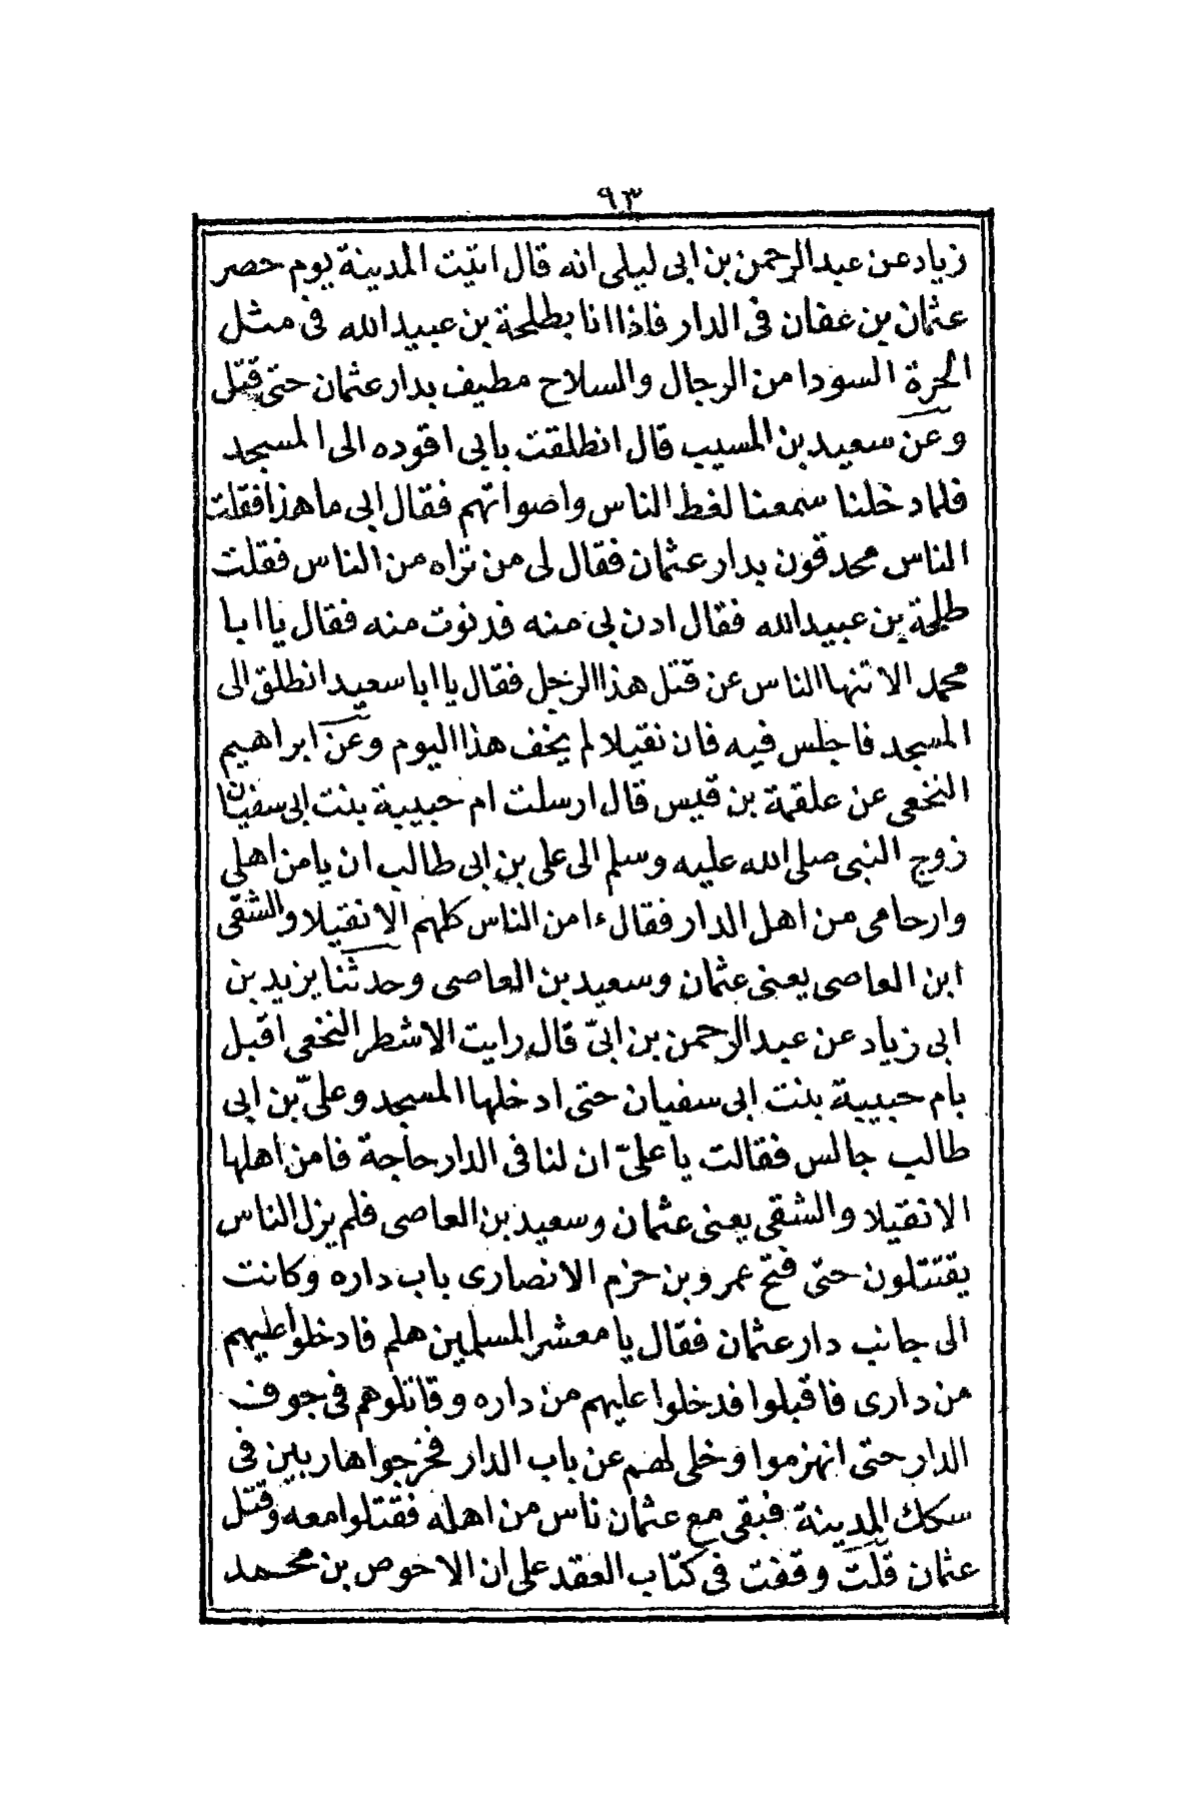 ٩٣
زياد عن عبد الرحمن بن ابى ليلى انه قال اتيت المدينة يوم حصر
عثمان بن عفان فى الدار فاذا انا بطلحة بن عبيد الله فى مثل
الحرة السودا من الرجال والسلاح مطيف بدار عثمان حتى قتل
وعن سعيد بن المسيب قال انطلقت بابى اقوده الى المسجد
فلما دخلنا سمعنا لغط الناس واصواتهم فقال ابى ما هذا فقلت
الناس محدقون بدار عثمان فقال لى من تراه من الناس فقلت
طلحة بن عبيد الله فقال ادن بى منه فدنوت منه فقال يا ابا
محمد الا تنها الناس عن قتل هذا الرجل فقال يا ابا سعيد انطلق الى
المسجد فاجلس فيه فان نقيلا لم يخف هذا اليوم وعن ابراهيم
النخعى عن علقمة بن قيس قال ارسلت ام حبيبة بنت ابى سفيان
زوج النبى صلى الله عليه وسلم الى على بن ابى طالب ان يا من اهلى
وارحامى من اهل الدار فقال ءامن الناس كلهم الا نقيلا والشقى
ابن العاصى يعنى عثمان وسعيد بن العاصى وحدثنا يزيد بن
ابى زياد عن عبد الرحمن بن ابىّ قال رايت الاشطر النخعى اقبل
بام حبيبة بنت ابى سفيان حتى ادخلها المسجد وعلىّ بن ابى
طالب جالس فقالت يا علىّ ان لنا فى الدار حاجة فامن اهلها
الا نقيلا والشقى يعنى عثمان وسعيد بن العاصى فلم يزل الناس
يقتتلون حتى فتح عمرو بن حزم الانصارى باب داره وكانت
الى جانب دار عثمان فقال يا معشر المسلمين هلم فادخلوا عليهم
من دارى فاقبلوا فدخلوا عليهم من داره وقاتلوهم فى جوف
الدار حتى انهزموا وخلى لهم عن باب الدار فخرجوا هاربين فى
سكك المدينة فبقى مع عثمان ناس من اهله فقتلوا معه وقتل
عثمان قلت وقفت فى كتاب العقد على ان الاحوص بن محمد